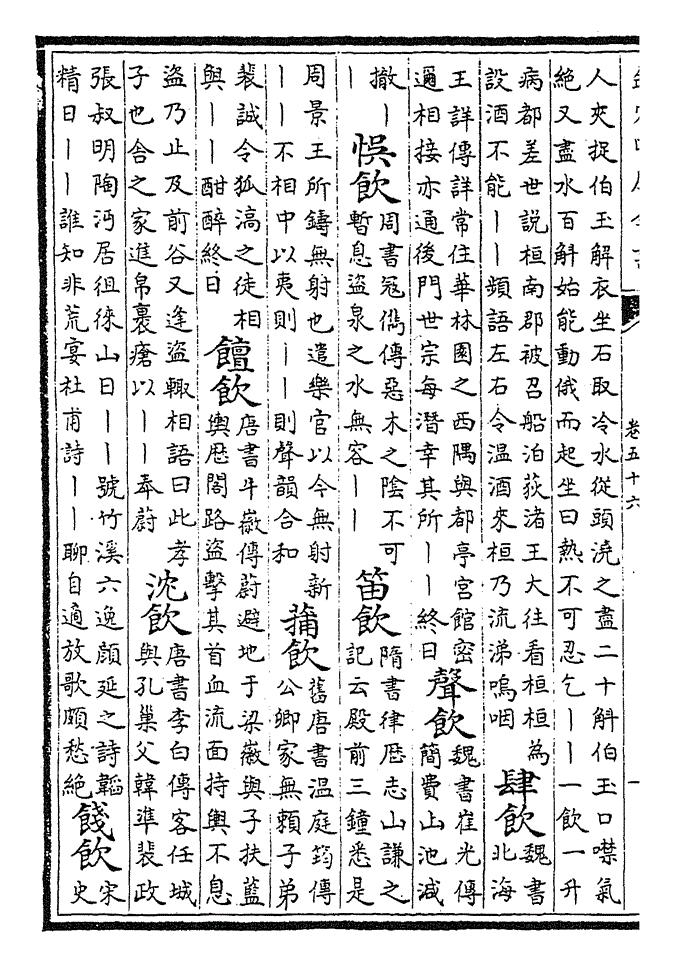 卷五十六
一
人夾捉伯玉解衣坐石取冷水從頭澆之盡二十斛伯玉口噤氣
絶又盡水百斛始能動俄而起坐曰熱不可忍乞丨丨一飲一升
病都差世説桓南郡被召船泊荻渚王大往看桓桓為
設酒不能丨丨頻語左右令温酒來桓乃流涕嗚咽
肆飲
魏書
北海
王詳傳詳常住華林園之西隅與都亭宮館密
邇相接亦通後門世宗每潛幸其所丨丨終日
聲飲
魏書崔光傳
簡費山池減
撤丨
丨
悞飲
周書冦儁傳惡木之陰不可
暫息盜泉之水無容丨丨
笛飲
隋書律歴志山謙之
記云殿前三鐘悉是
周景王所鑄無射也遣樂官以今無射新
丨丨不相中以夷則丨丨則聲韻合和
蒱飲
舊唐書温庭筠傳
公卿家無賴子弟
裴誠令狐滈之徒相
與丨丨酣醉終日
饘飲
唐書牛徽傳蔚避地于梁徽與子扶籃
輿歴閣路盜擊其首血流面持輿不息
盜乃止及前谷又逢盜輙相語曰此孝
子也舍之家進帛裹瘡以丨丨奉蔚
沈飲
唐書李白傳客任城
與孔巢父韓準裴政
張叔明陶沔居徂徠山日丨丨號竹溪六逸顔延之詩韜
精日丨丨誰知非荒宴杜甫詩丨丨聊自適放歌頗愁絶
餞飲
宋
史